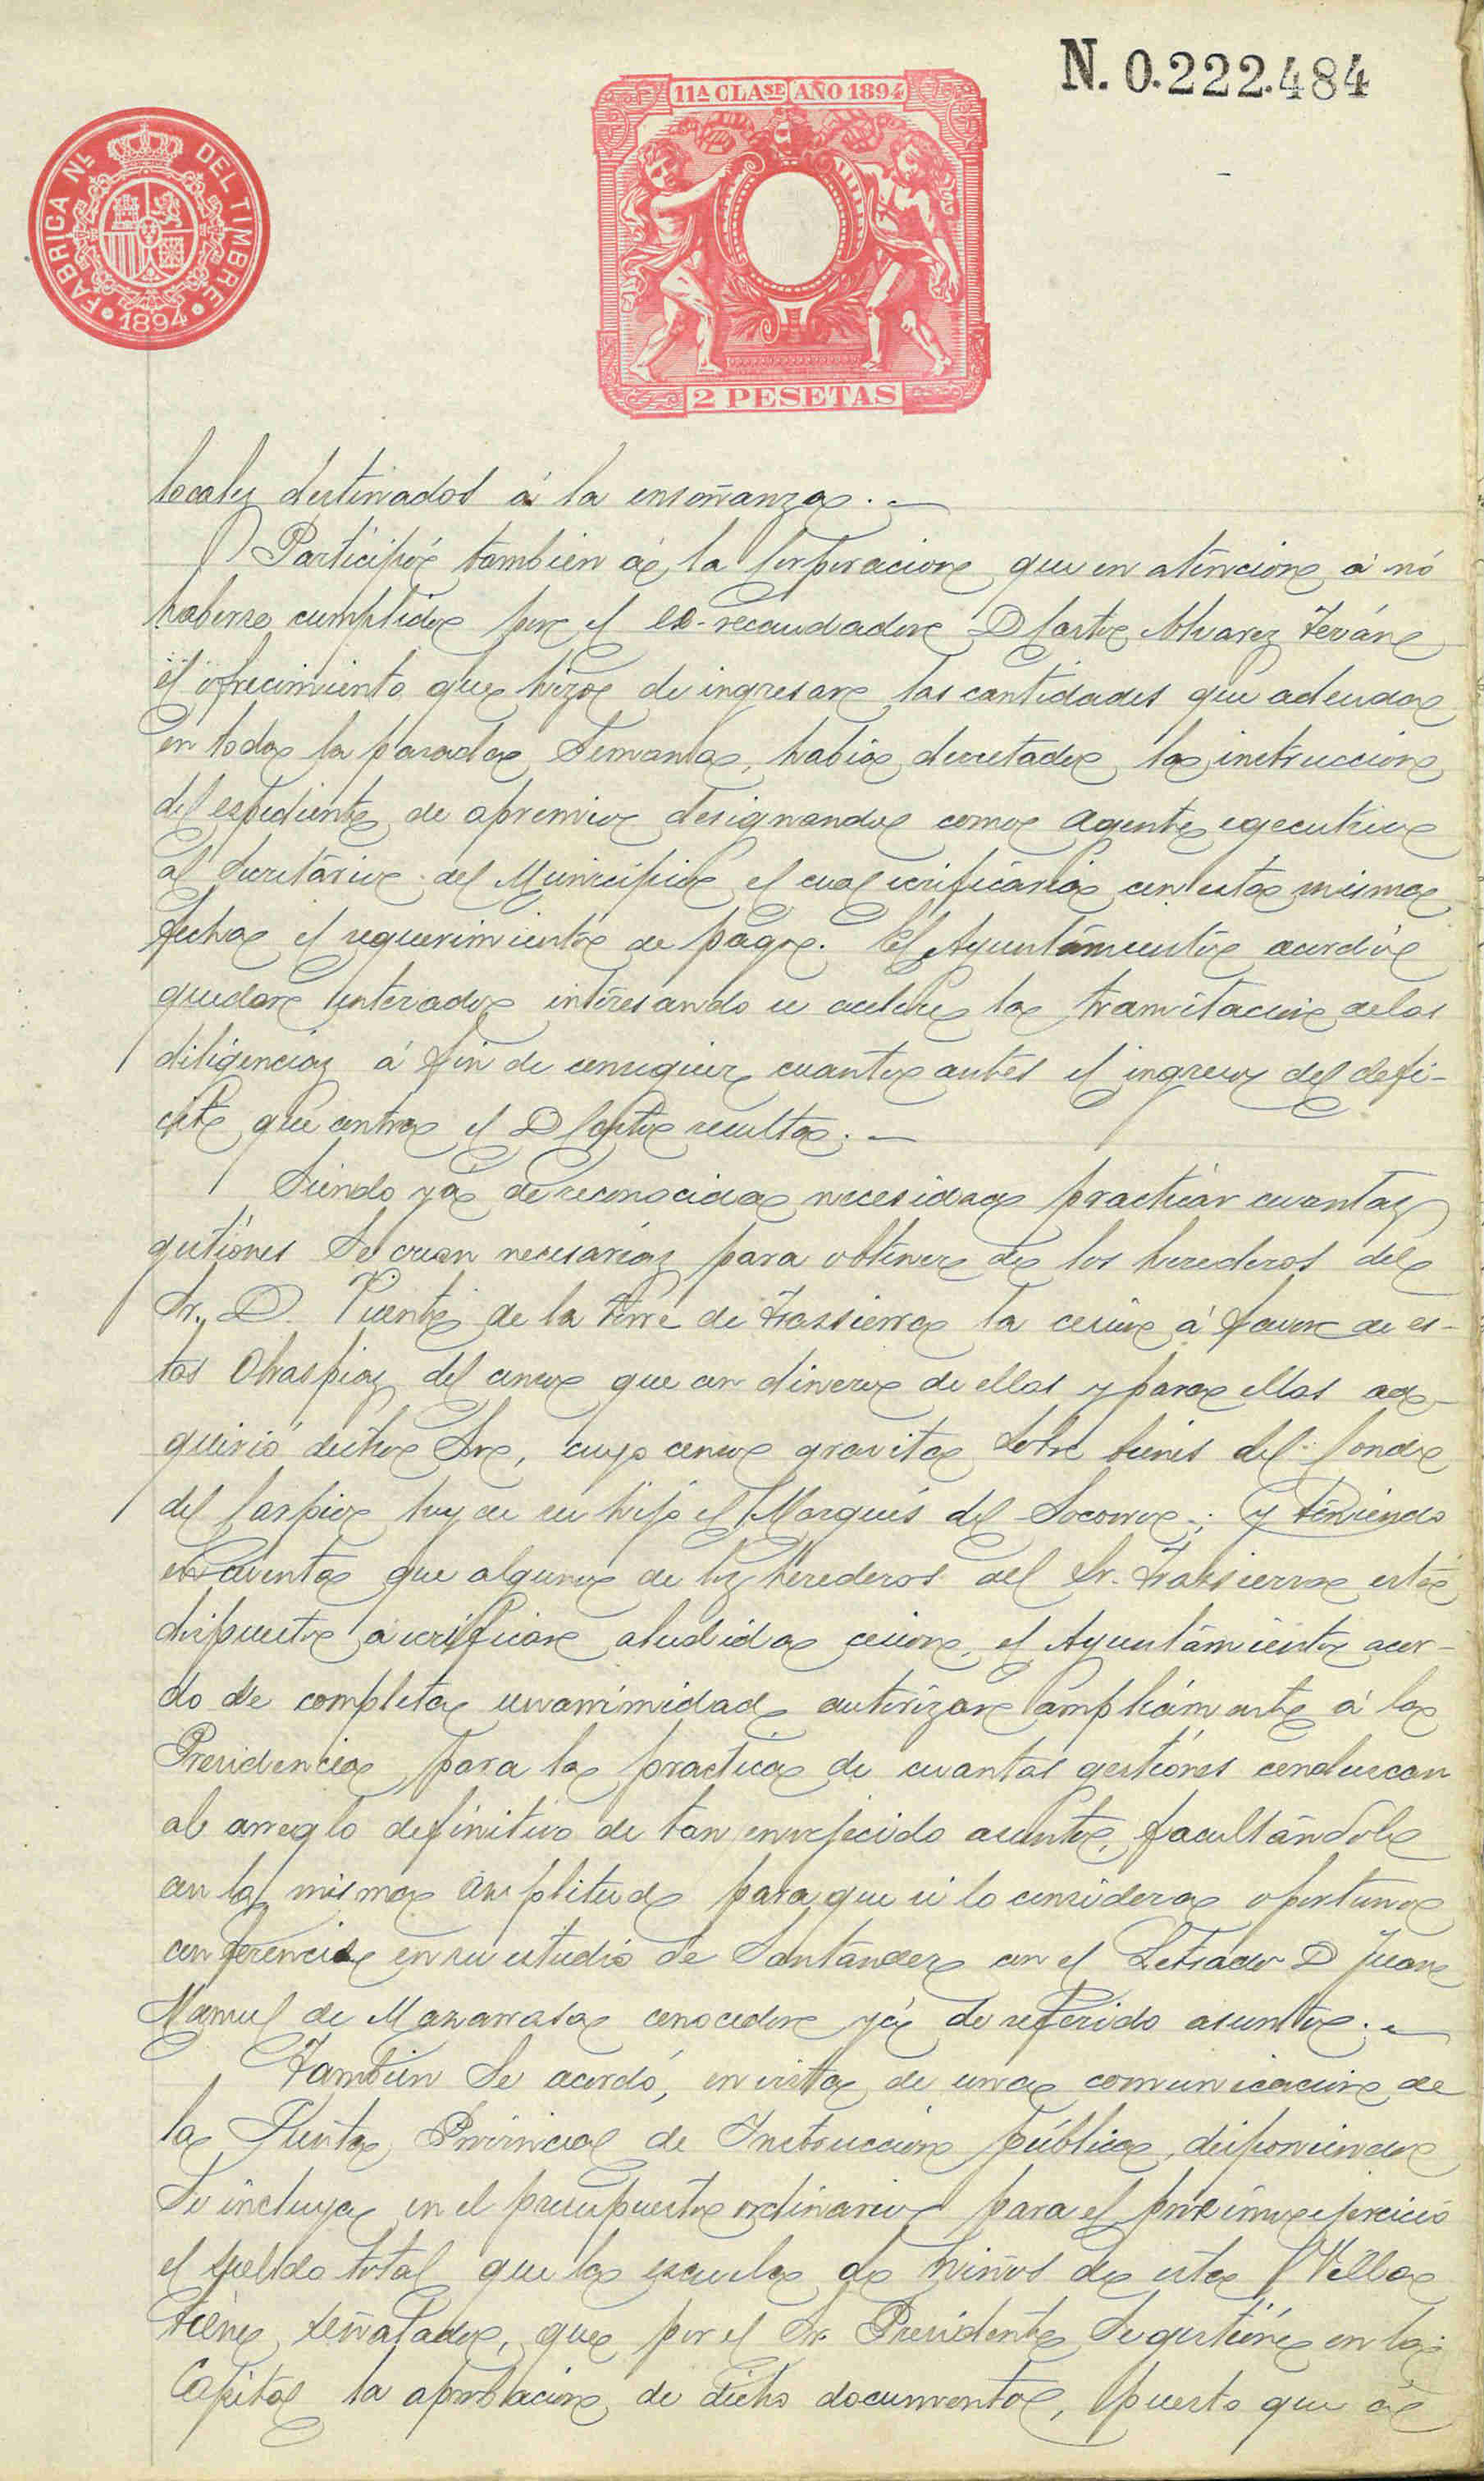 N. 0.222.484
11ª CLASE AÑO 1894
FABRICA NL. DEL TIMBRE
1894
2 PESETAS
locales destinados á la enseñanza. —
Participó tambien á la Corporacion que en atencion á nó
haberse cumplido por el ex-recaudador D Castor Alvarez Terán
el ofrecimiento que hizo de ingresar las cantidades que adeuda
en toda la pasada Semana, habia decretado la instruccion
del espediente de apremio designando como agente egecutivo
al Secretário del Municipio el cual verificaria con esta misma
fecha el requerimiento de pago. El Ayuntamiento acordó
quedar enterado interesando se active la tramitacion de las
diligencias á fin de conseguir cuanto antes el ingreso del defi-
cit que contra el D Castor resulta. —
Siendo ya de reconocida necesidad practicar cuantas
gestiónes Se crean necesarias para obtener de los herederos del
Sr. D. Vicente de la Torre de Trassierra la cesion á favor de es-
tas Obraspias del censo que con dinero de ellas y para ellas ad-
quirió dicho Sr, cuyo censo gravita Sobre bienes del Conde
del Carpio hoy en su hijo el Marqués del Socorro; y teniendo
en cuenta que alguno de los herederos del Sr. Trassierra está
dispuesto á verificar aludida cesion, el Ayuntamiento acor-
do de completa unanimidad autorizar ampliamente á la
Presidencia para la practica de cuantas gestiónes conduscan
al arreglo definitivo de tan envejecido asunto, facultándole
con la misma amplitud para que si lo considera oportuno
conferencie en su estudio de Santander con el Letrado D Juan
Manuel de Mazarrasa conocedor yá de referido asunto. —
Tambien Se acordó, en vista de una comunicacion de
la Junta Provincial de Instruccion pública, disponiendo
Se incluya en el presupuesto ordinario para el próximo ejercicio
el sueldo total que la escuela de niños de esta Villa
tiene señalado, que por el Sr. Presidente Se gestione en la
Capital la aprobacion de dicho documento, puesto que á